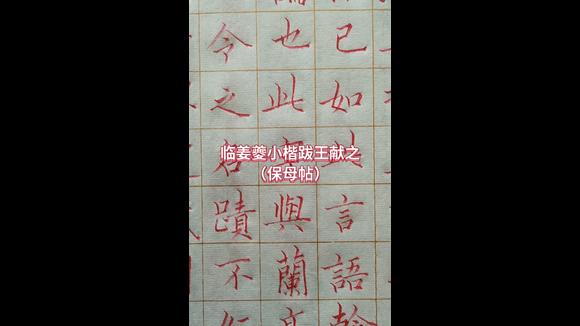 临姜夔小楷跋王献之
（保母帖）
已如此言語
也此
與蘭
令之
蹟不